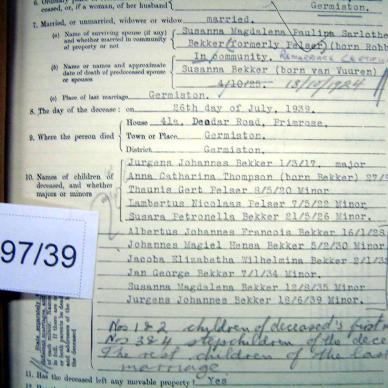 ceased, or, if a woman, of her husband Germiston.
7. Married, or unmarried, widower or widow married.
(a) Name of surviving spouse (if any) and whether married in community of property or not
Susanna Magdalena Paulina Sarlothe
Bekker (formerly Pelser) (born Robb
In community.
(b) Name or names and approximate date of death of predeceased spouse or spouses
Susanna Bekker (born van Vuuren)
13/10/1924
(c) Place of last marriage Germiston.
8. The day of the decease: on 26th day of July, 1939.
9. Where the person died
House 41a, Deodar Road, Primrose.
Town or Place Germiston.
District Germiston.
10. Names of children of deceased, and whether majors or minors
Jurgens Johannes Bekker 1/3/17. major
Anna Catharina Thompson (born Bekker) 27/
Thaunis Gert Pelser 8/5/20 Minor
Lambertus Nicolaas Pelser 7/5/22 Minor
Susara Petronella Bekker 21/5/26 Minor.
Albertus Johannes Francois Bekker 16/1/28
Johannes Magiel Hensa Bekker 5/2/30 Minor
Jacoba Elizabetha Wilhelmina Bekker 2/1/3
Jan George Bekker 7/1/34 Minor.
Susanna Magdalena Bekker 12/8/35 Minor
Jurgens Johannes Bekker 12/6/39 Minor.
97/39
Nos 1 & 2 children of deceased's first m
Nos 3 & 4 stepchildren of the dece
The rest children of the last
marriage
11. Has the deceased left any movable property? Yes